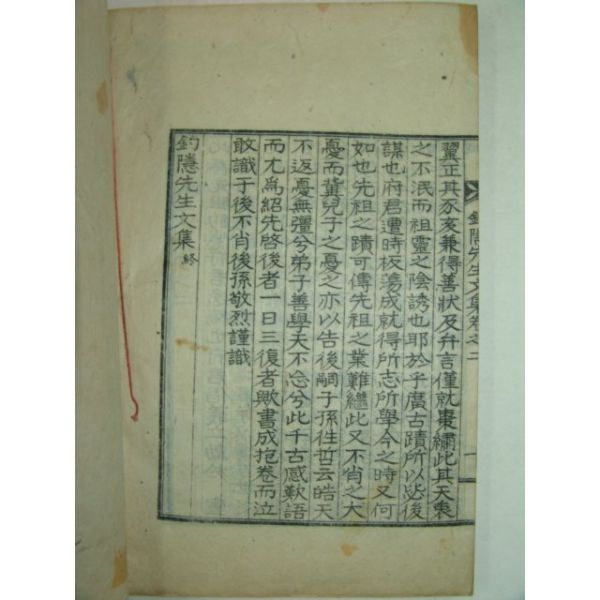 釣隱先生文集卷之二
翼正其豕亥兼得善狀及弁言僅就棗繡此其天衷
之不泯而祖靈之陰誘也耶於乎廣古蹟所以毖後
謀也府君遭時板蕩成就得所志所學今之時又何
如也先祖之蹟可傳先祖之業難繼此又不肖之大
憂而冀兒子之憂之亦以告後嗣子孫徃哲云皓天
不返憂無彊兮弟子善學天不忘兮此千古感歎語
而尤爲紹先啓後者一日三復者歟書成抱卷而泣
敢識于後不肖後孫敬烈謹識
釣隱先生文集 終